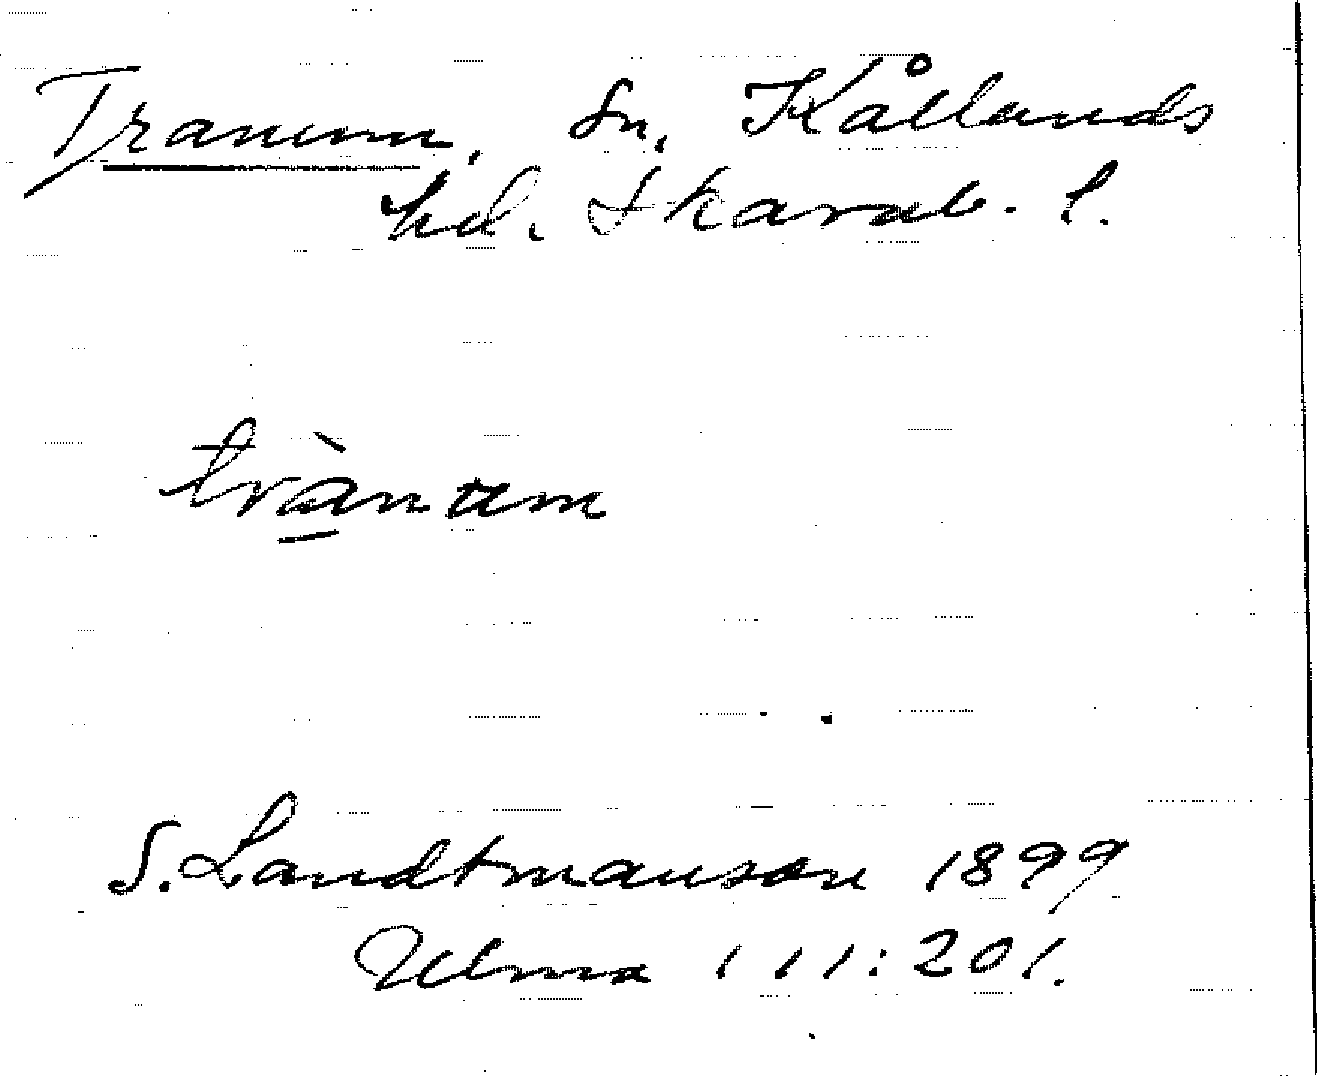 Tranum, Sn, Kållands
hd. Skarab. l.
tràn um
S. Landtmanson 1899
Ulma 111:201.